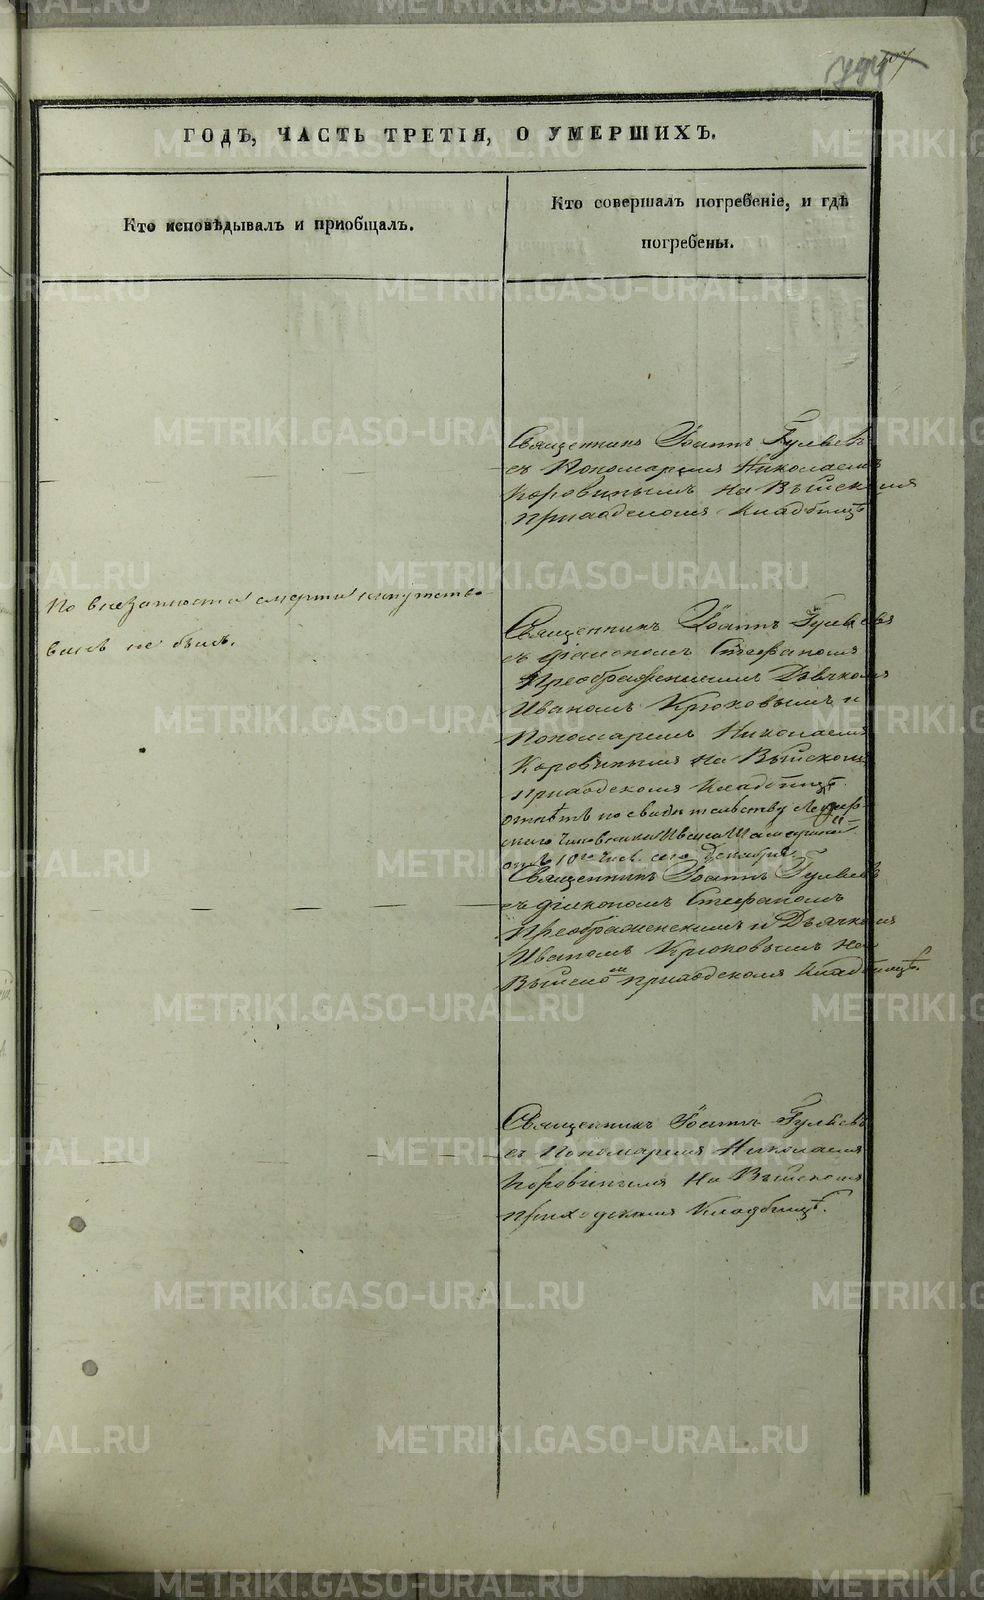 ГОДѢ, ЧАСТЬ ТРЕТІЯ, О УМЕРШИХЪ.
Кто исповѣдывалъ и пріобщалъ.
Кто совершалъ погребеніе, и гдѣ
погребены.
Священникъ Іоаннъ Гуляевъ
съ Пономаремъ Николаемъ
Коровинымъ на Выйскомъ
приходскомъ кладбищѣ
По внезапности смерти напутство-
ванъ не былъ.
Священникъ Іоаннъ Гуляевъ
съ діакономъ Стефаномъ
Преображенскимъ Дьячкомъ
Иваномъ Крюковымъ и
Пономаремъ Николаемъ
Коровинымъ на Выйскомъ
приходскомъ кладбищѣ
отпѣтъ по свидѣтельству
Чиновника
отъ 10го сего Декабря
Священникъ Іоаннъ Гуляевъ
съ діакономъ Стефаномъ
Преображенскимъ и Дьячкомъ
Иваномъ Крюковымъ на
Выйскомъ приходскомъ кладбищѣ.
Священникъ Іоаннъ Гуляевъ
съ Пономаремъ Николаемъ
Коровинымъ на Выйскомъ
приходскомъ кладбищѣ.
METRIKI.GASO-URAL.RU